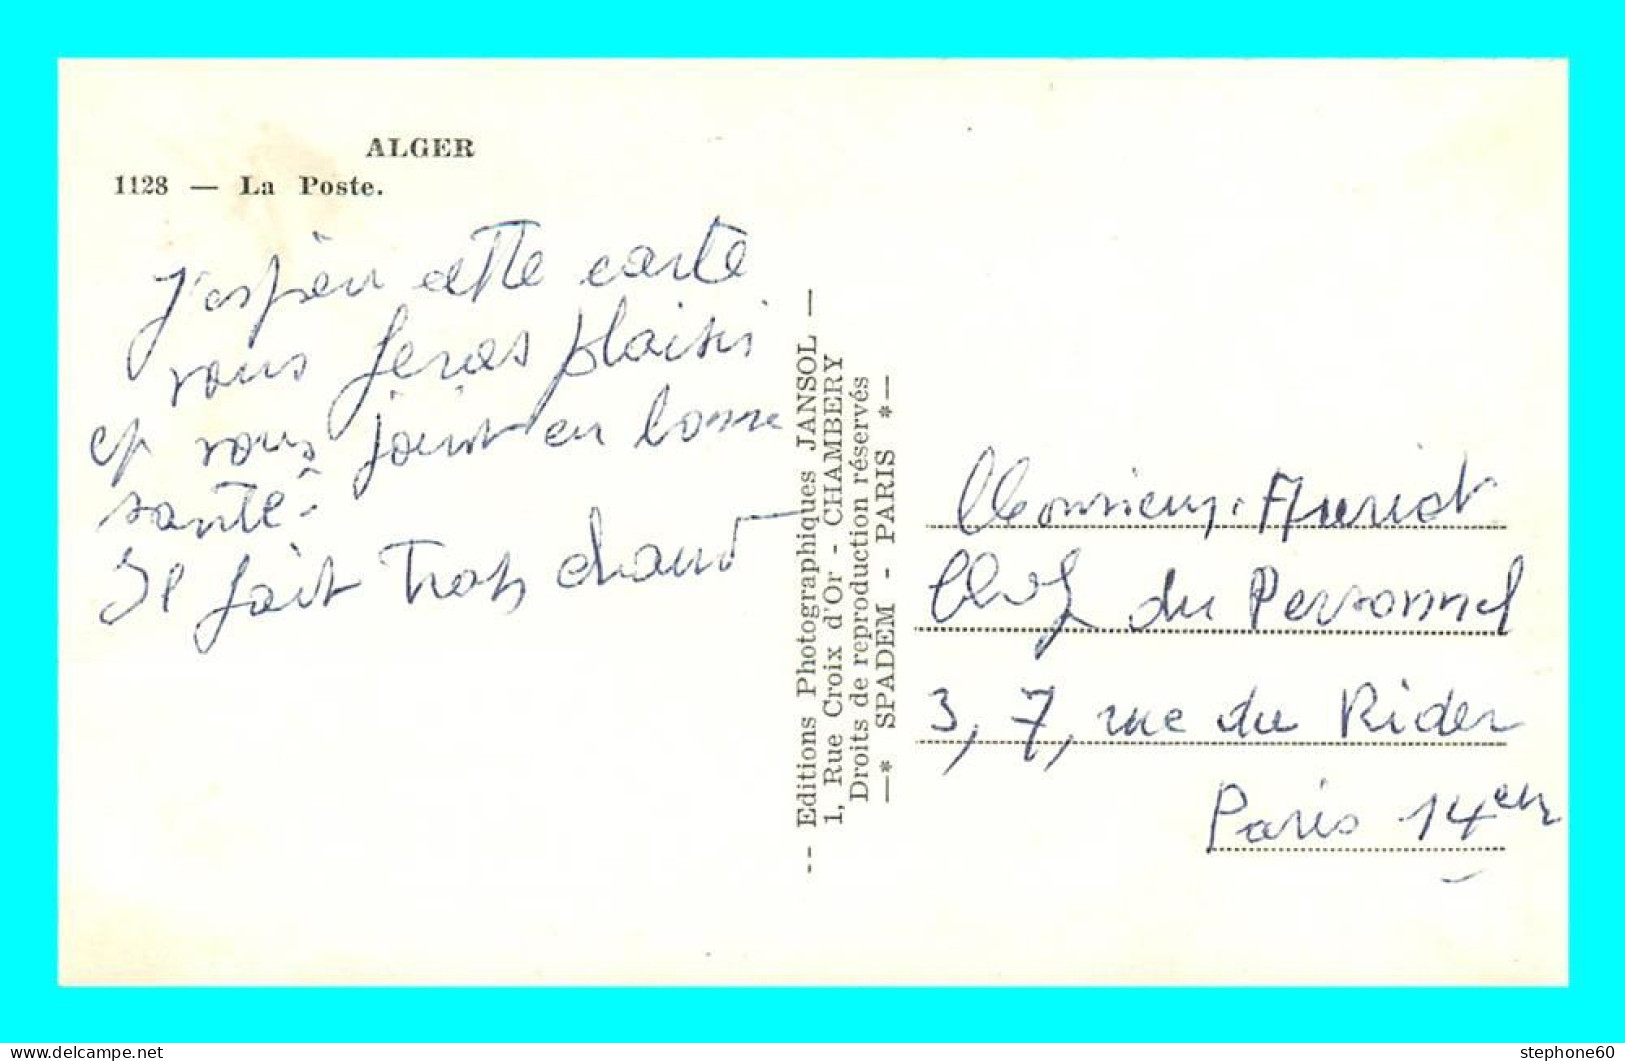 ALGER
1128 — La Poste.
J'espère cette carte
vous feras plaisir
et vous joint en bonne
santé -
Il fait trop chaud
-- Editions Photographiques JANSOL —
1, Rue Croix d'Or - CHAMBERY
Droits de reproduction réservés
—* SPADEM - PARIS *—
Monsieur
Chef du Personnel
3, 7, rue du Rider
Paris 14em
stephone60